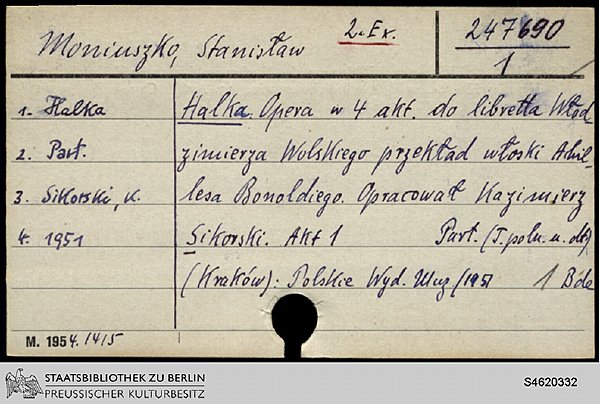 Moniuszko, Stanisław 2. Ex. 247690
1
1. Halka
2. Part.
3. Sikorski, K.
4. 1951
Halka. Opera w 4 akt. do libretta Włod
zimierza Wolskiego przekład włoski Achil-
lesa Bonoldiego. Opracował Kazimierz
Sikorski. Akt 1 Part. (T. poln. u. dt)
(Kraków): Polskie Wyd. Muz (1951 1 Bde
M. 1954. 1415
STAATSBIBLIOTHEK ZU BERLIN
PREUSSISCHER KULTURBESITZ
S4620332